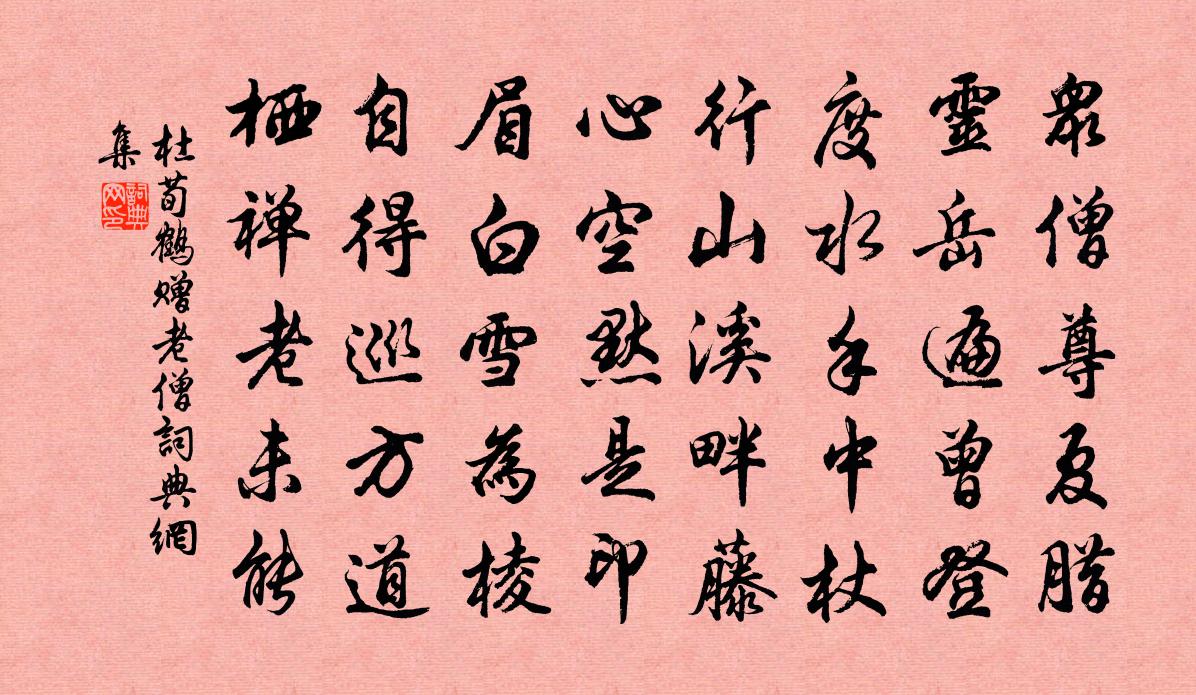 眾僧尊夏腊
靈岳遍曾登
度水手中杖
行山溪畔藤
心空默是印
眉白雪為棱
自得巡方道
栖禅老未能
杜荀鶴赠老僧詞典網
集
詞典
网印